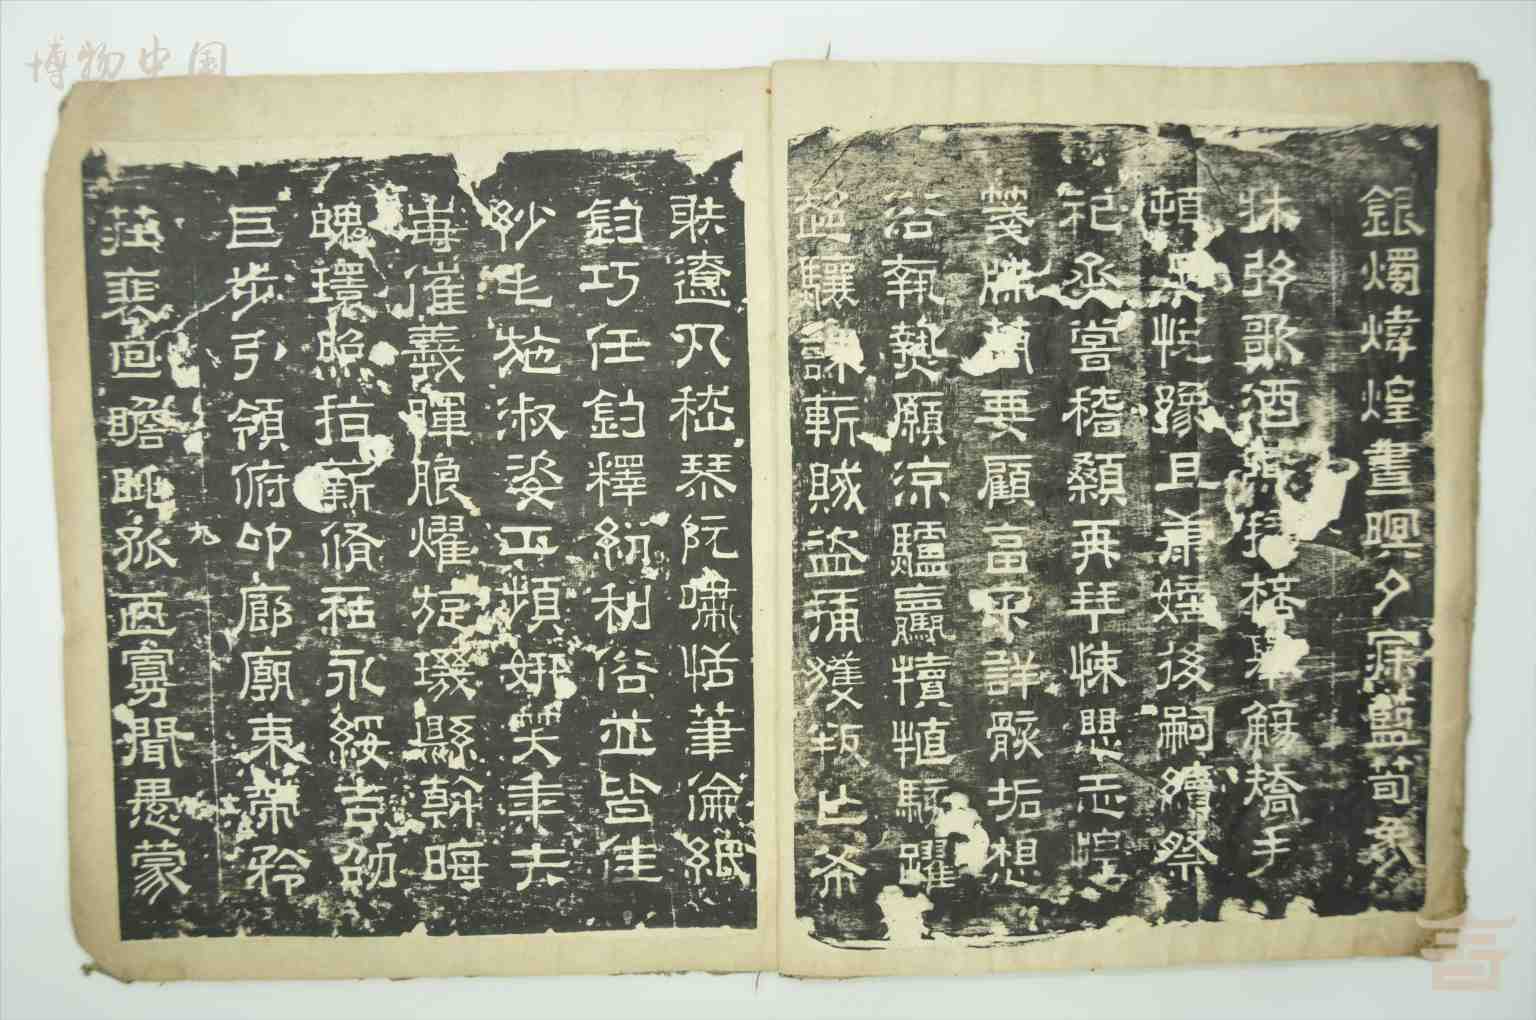 博物中国
銀燭煒煌晝瞑夕寐藍荀象
牀弦歌酒宴接杯舉觴矯手
頓足悅豫且康嫡後嗣續祭
祀烝嘗稽顙再拜悚懼恐惶
箋牒簡要顧畣審詳骸垢想
浴執熱願涼驢騾犢犆駭躍
超驤誅斬賊盜捕獲叛亡布
射遼丸嵇琴阮嘯恬筆倫紙
鈞巧任釣釋紛利俗並皆佳
紗毛施淑姿工顰妍笑年矢
每催羲暉朗耀旋璣懸斡晦
魄環照指薪脩祜永綏吉劭
巨步引領俯仰廊廟束帶矜
九
莊裴回瞻眺孤陋寡聞愚蒙